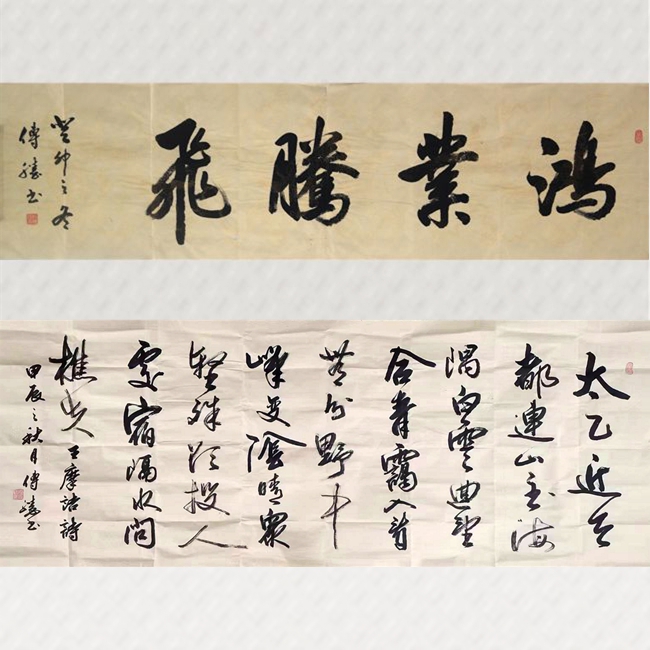 鴻業騰飛
癸卯之冬
傅 書
太乙近天
都連山至海
隅白雲迴望
合青靄入看
無分野中
峰變陰晴眾
壑殊欲投人
處宿隔水問
樵夫 王摩詰詩
甲辰之秋月傅 書